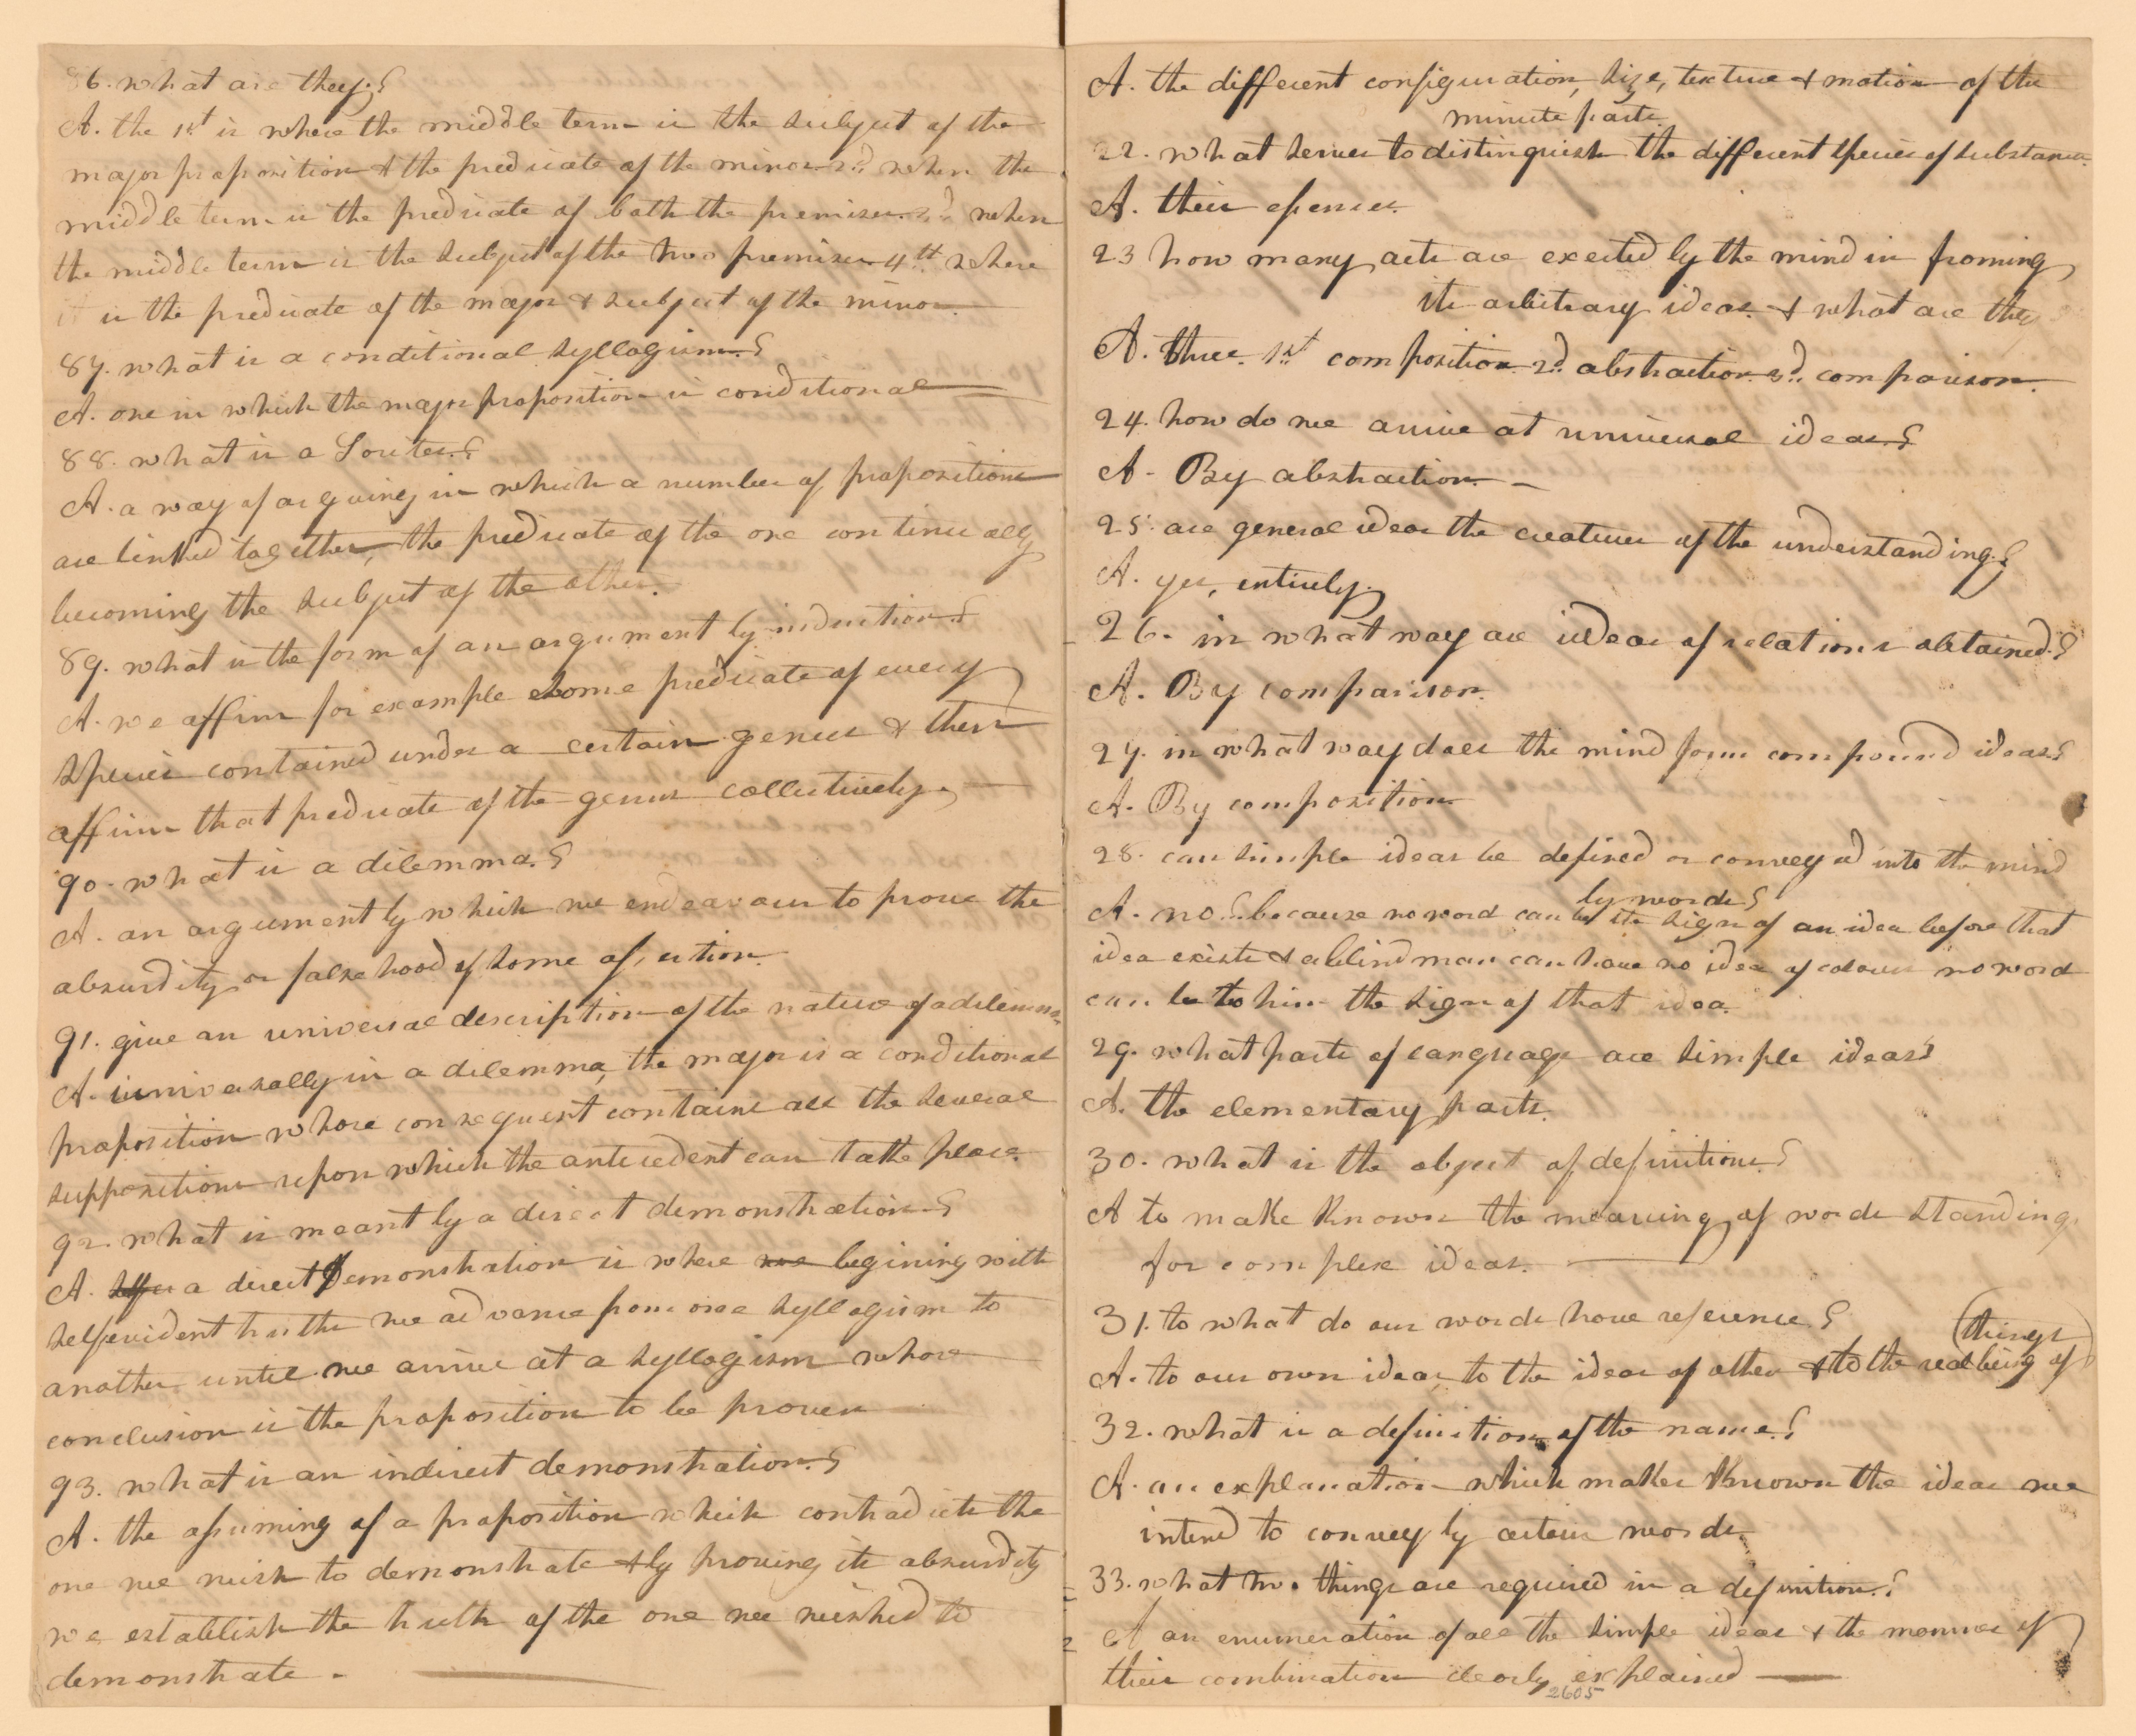 86. what are they?
A. the 1st is where the middle term is the subject of the
major proposition & the predicate of the minor 2d when the
middle term is the predicate of both the premises. 3d when
the middle term is the subject of the two premises 4th where
it is the predicate of the major & subject of the minor.
87. what is a conditional syllogism.?
A. one in which the major proposition is conditional
88. what is a Sorites.?
A. a way of arguing in which a number of propositions
are linked together, the predicate of the one continually
becoming the subject of the other.
89. what is the form of an argument by induction.?
A. we affirm for example some predicate of every
species contained under a certain genus & then
affirm that predicate of the genus collectively.
90. what is a dilemma.?
A. an argument by which we endeavour to prove the
absurdity or falsehood of some assertion.
91. give an universal description of the nature of a dilemma.
A. universally in a dilemma, the major is a conditional
proposition whose consequent contains all the several
suppositions upon which the antecedent can take place.
92. what is meant by a direct demonstration.?
A. a direct demonstration is where we begining with
selfevident truths we advance from one syllogism to
another until we arrive at a syllogism whose
conclusion is the proposition to be proven
93. what is an indirect demonstration.?
A. the assuming of a proposition which contradicts the
one we wish to demonstrate & by proving its absurdity
we establish the truth of the one we wished to
demonstrate.
A. the different configuration, size, texture & motion of the
minute parts.
22. what serves to distinguish the different species of substances.
A. their essences.
23 how many acts are exerted by the mind in froming
its arbitrary ideas. & what are they
A. three. 1st composition 2d. abstraction 3d. comparison.
24. how do we arrive at universal ideas.?
A. By abstraction.
25. are general ideas the creatures of the understanding.?
A. yes, entirely.
26. in what way are ideas of relations obtained.?
A. By comparison.
27. in what way does the mind form compound ideas?
A. By composition
28. can simple ideas be defined or conveyed into the mind
by words?
A. no.. because no word can be the sign of an idea before that
idea exists & a blind man can have no idea of colours no word
can be to him the sign of that idea.
29. what parts of language are simple ideas?
A. the elementary parts.
30. what is the object of definitions.?
A to make known the meaning of words standing
for complex ideas.
31. to what do our words have reference.?
(things
A. to our own ideas, to the ideas of other & to the real being of)
32. what is a definition of the name.?
A. an explanation which makes known the ideas we
intend to convey by certain words.
33. what two things are required in a definition.?
A an enumeration of all the simple ideas & the manner of
their combination clearly explained
2605